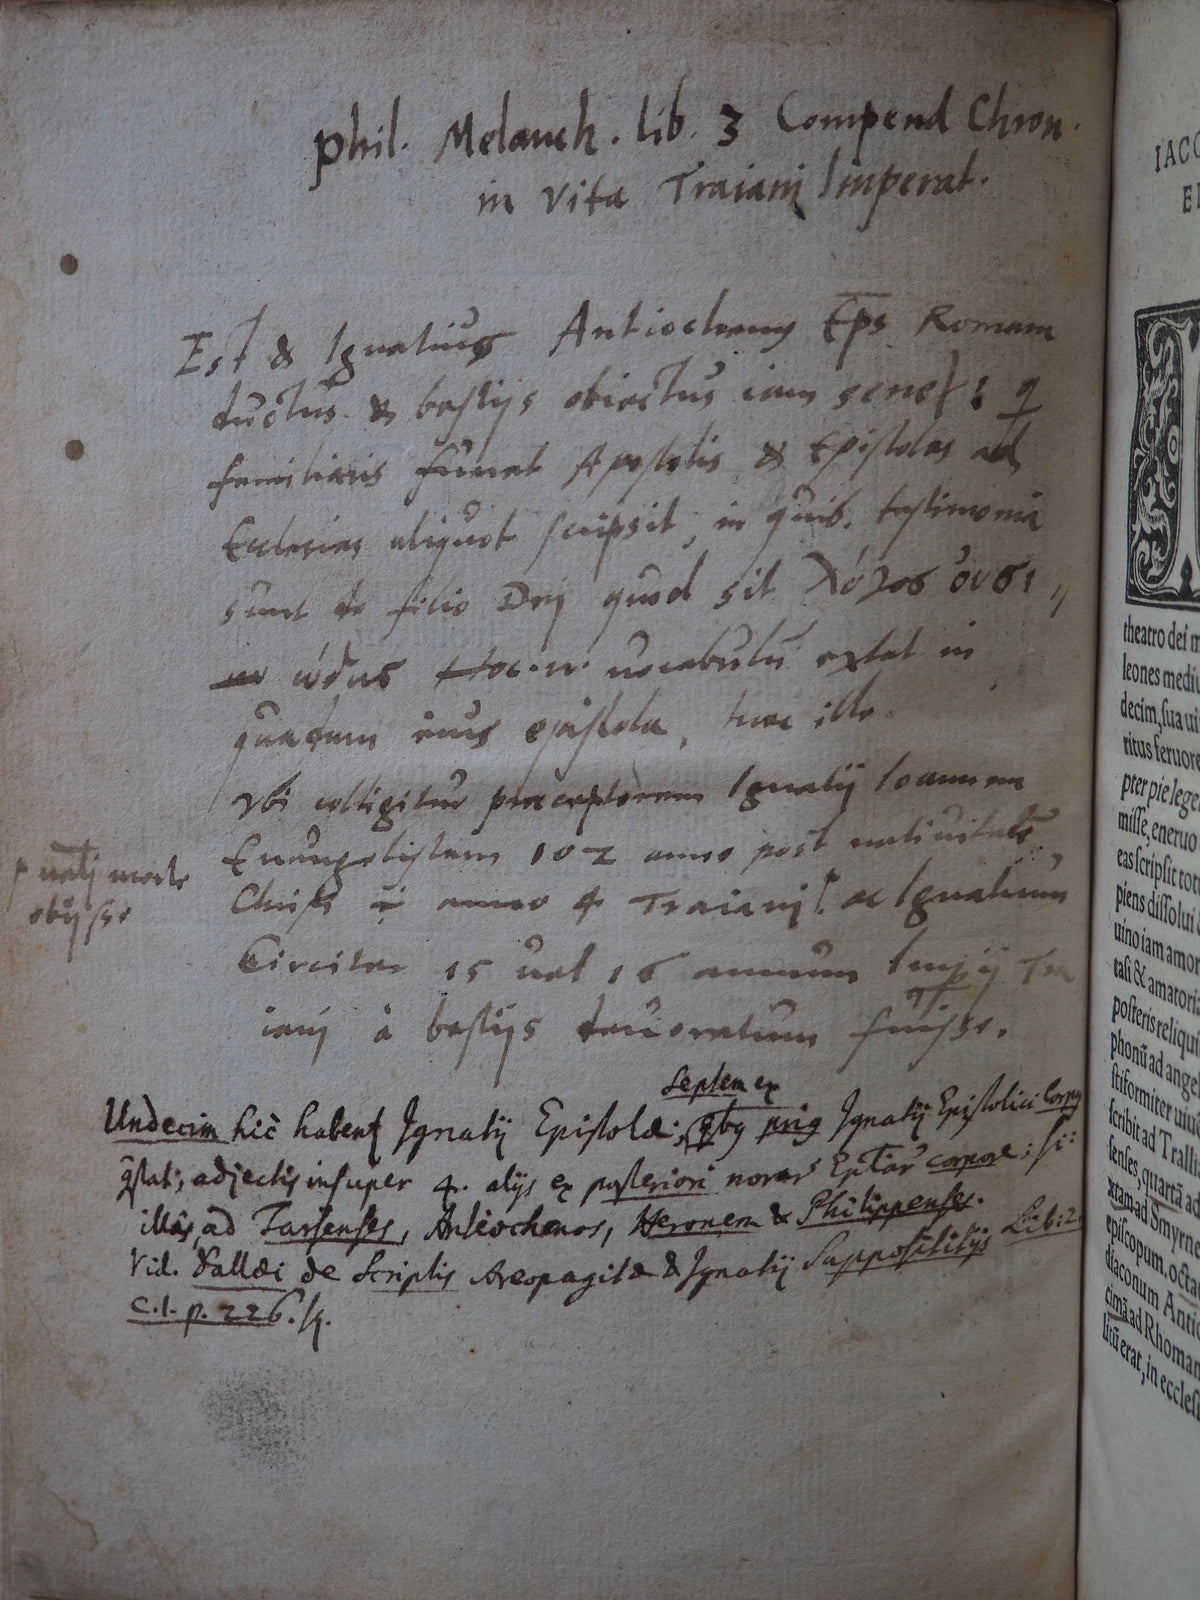 phil. Melanch. lib. 3 Compend Chron.
in vita Traianj Imperat.
Est & Ignatius Antiochenus Eps Romam
ductus & bestijs obiectus iam senex: q
familiaris fuerat Apostolis & Epistolas ad
Ecclesias aliquot scripsit, in quib. testimonia
sunt de filio Dej quod sit λόγος οὐσι
ώδης Hoc vocabulū extat in
quadam eius epistola, haec ille.
Vbi colligitur praeceptorem Ignatij Ioannem
Euangelistam 102 anno post nativitatē
Christi anno 4 Traianj. ac Ignatium
Circiter 15 vel 16 annum Imp̄ij Tra
ianj à bestijs devoratum fuisse.
morte
obijsse
Septem ex
Undecim hîc habent Ignatij Epistolæ; qbus prius Ignatij Epistolici Corpus
q̄stat; adjectis insuper 4. alijs ex posteriori novar Eplar corpore: sc:
illis, ad Tarsenses, Antiochenos, Heronem & Philippenses.
Vid. Dallæi de Scriptis Areopagitæ & Ignatij Supposititijs Lib: 2.
C. 1. p. 226. sq.
IACO
theatro dei
leones mediu
decim, sua ui
ritus feruore
pter pie lege
misse, eneruo
eas scripsit tot
piens dissolui
uino iam amor
tasi & amatoria
posteris reliqui
phonū ad angel
stiformiter uiue
scribit ad Tralli
senses, quartā ad
xtam ad Smyrne
episcopum. octa
diaconum Antio
cimā ad Rhoman
litū erat, in ecclesi